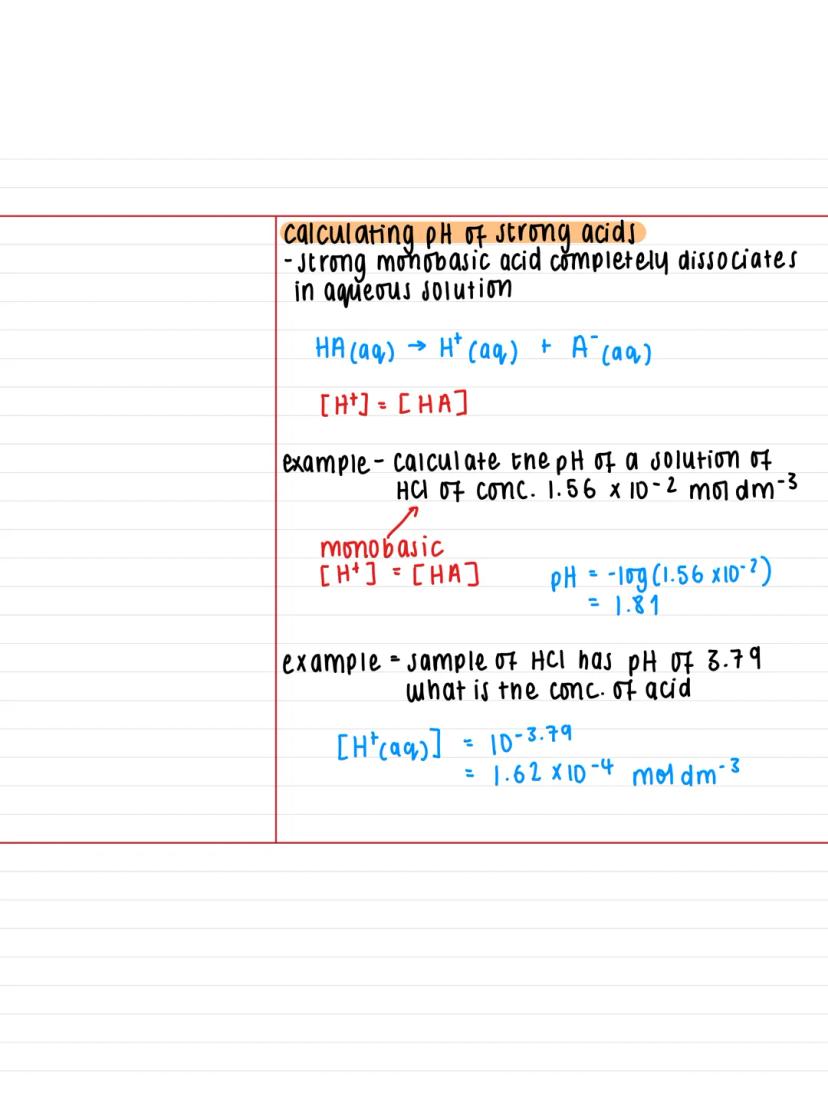 calculating pH of strong acids
- strong monobasic acid completely dissociates
in aqueous solution
HA(aq) → H⁺(aq) + A⁻(aq)
[H⁺] = [HA]
example - calculate the pH of a solution of
HCl of conc. 1.56 x 10⁻² mol dm⁻³
monobasic
[H⁺] = [HA]
pH = -log(1.56 x10⁻²)
= 1.81
example = sample of HCl has pH of 3.79
what is the conc. of acid
[H⁺(aq)] = 10⁻³·⁷⁹
= 1.62 x 10⁻⁴ mol dm⁻³